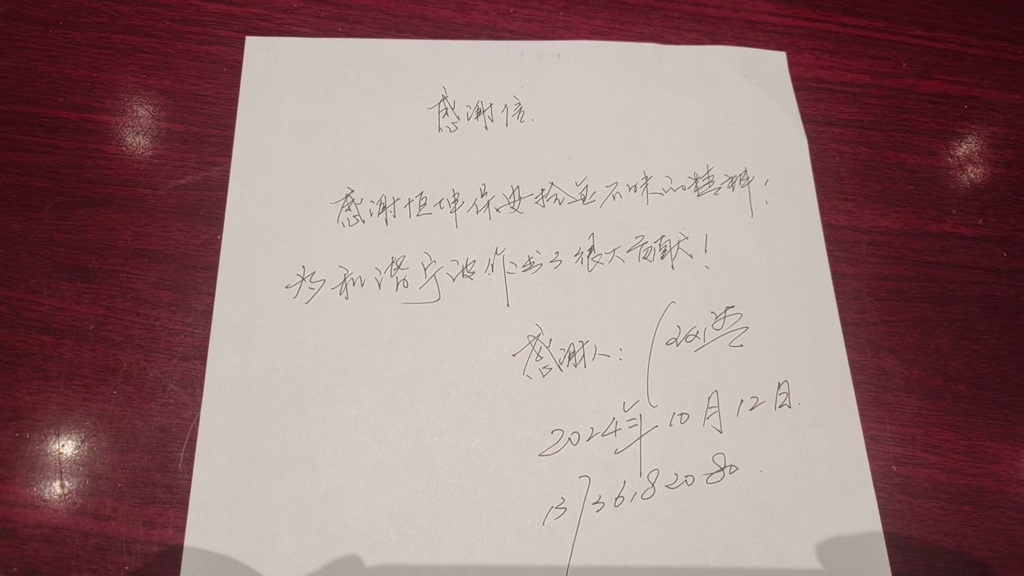 感谢信.
感谢恒坤保安拾金不昧的精神!
为和谐宁波作出了很大贡献!
感谢人:
2024年10月12日.